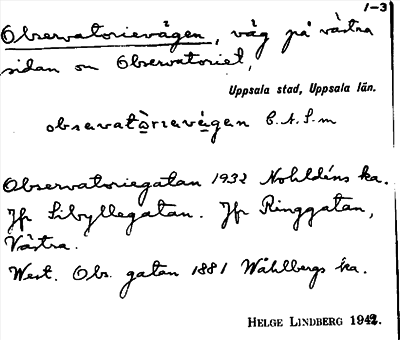 1-3
Observatorievägen, väg på västra
sidan om Observatoriet,
Uppsala stad, Uppsala län.
observatòrıevägen C. A. S-m
Observatoriegatan 1932 Nohldéns ka.
Jfr Sibyllegatan. Jfr Ringgatan,
Västra.
West. Obs. gatan 1881 Wåhlbergs ka.
HELGE LINDBERG 1942.